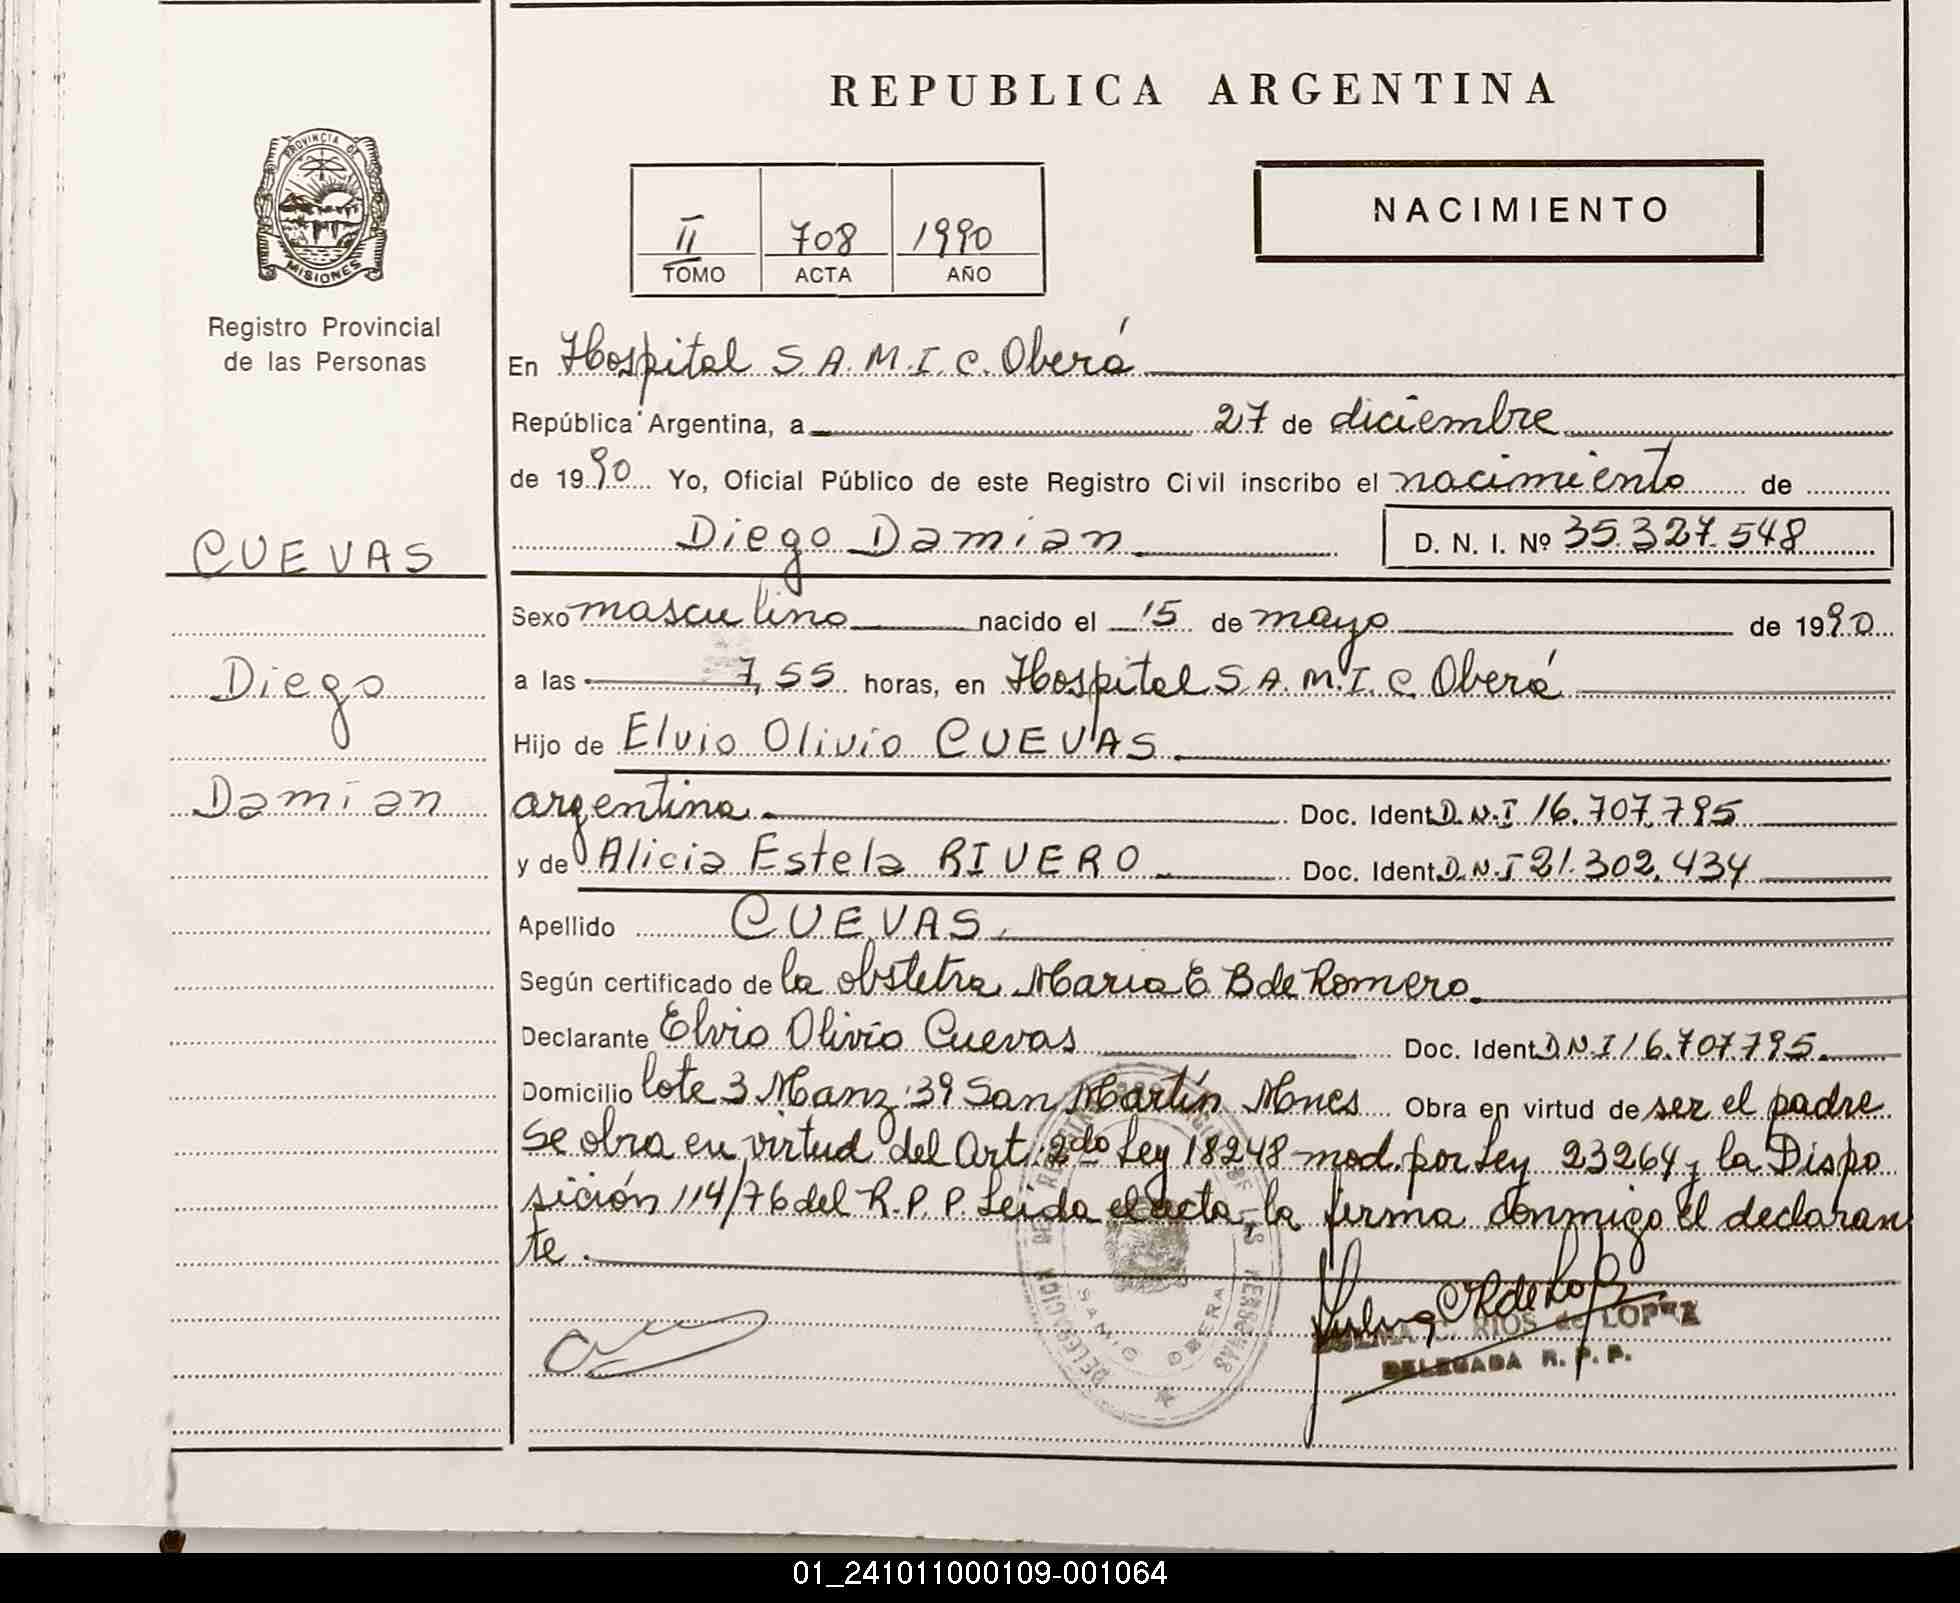 REPUBLICA ARGENTINA
PROVINCIA DE
MISIONES
Registro Provincial
de las Personas
NACIMIENTO
II 708 1990
TOMO ACTA AÑO
En Hospital S A.M.I.C. Oberá
República Argentina, a 27 de diciembre
de 1990 Yo, Oficial Público de este Registro Civil inscribo el nacimiento de
CUEVAS
Diego Damian D. N. I. Nº 35.327.548
Sexo masculino nacido el 15 de mayo de 1990
Diego
a las 7,55 horas, en Hospital S.A.M.I.C. Oberá
Hijo de Elvio Olivio CUEVAS
Damian
argentina. Doc. Ident D.N.I 16.707.795
y de Alicia Estela RIVERO Doc. Ident D.N.I 21.302.434
Apellido CUEVAS.
Según certificado de la obstetra Maria E B de Romero.
Declarante Elvio Olivio Cuevas Doc. Ident D.N.I 16.707.795.
Domicilio lote 3 Manz 39 San Martín Mnes Obra en virtud de ser el padre
Se obra en virtud del Art. 2do Ley 18248 mod. por Ley 23264 y la Dispo
sición 114/76 del R.P.P. Leída el acta, la firma conmigo el declaran
te.
DELEGACION PERSONAS
OBERA
RIOS de LOPEZ
DELEGADA R. P. P.
01_241011000109-001064